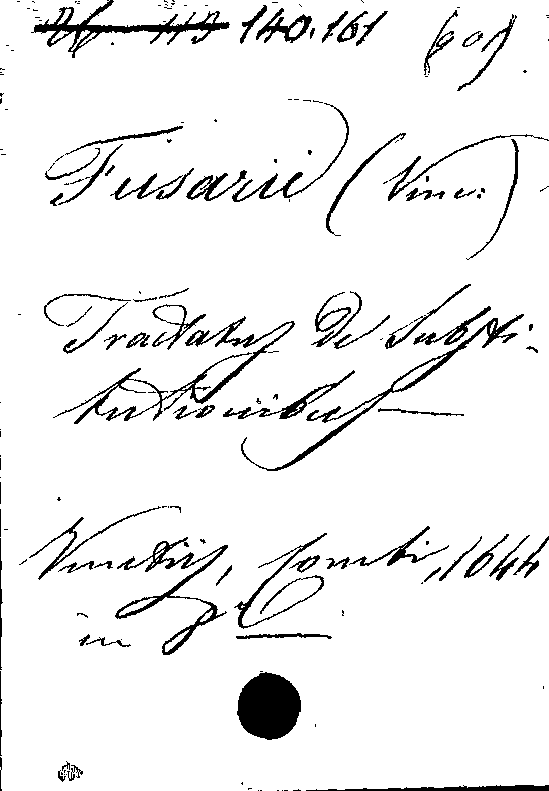 140.161
Fusarii (Vinc:)
Tractatus De Substi-
tutionibus
Venetiis, Combi, 1644
in